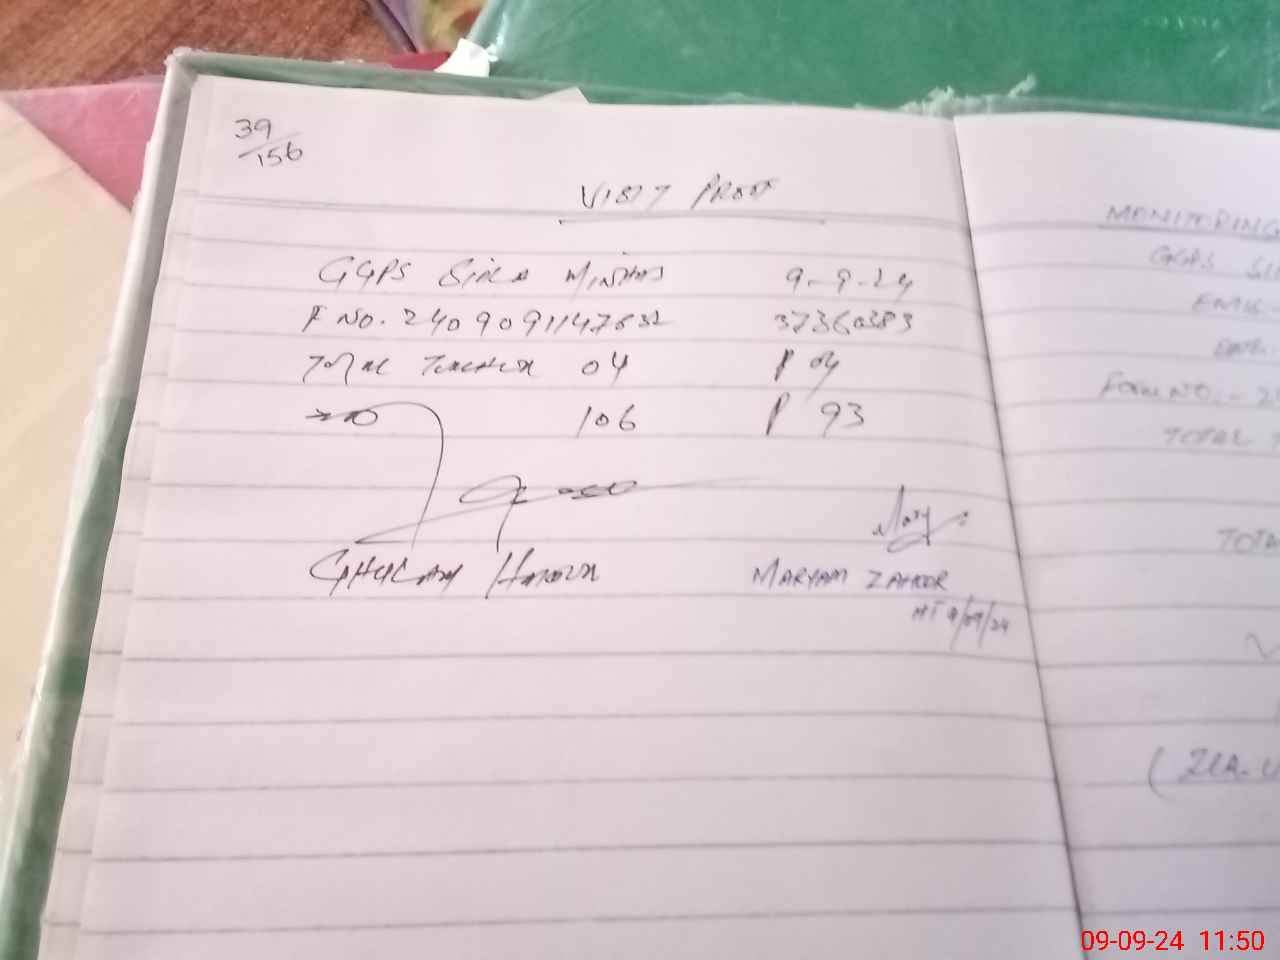 39
/156
VISIT PROOF
GGPS 9-9-24
F NO. 2409091147632 37360383
Total Teacher 04 P 04
106 P 93
Mary
GHULAM MARYAM ZAHOOR
HT 9/09/24
MONITORING
GGPS
EMIS
FORM NO:-
TOTAL T
TOTA
(ZIA-U
09-09-24 11:50